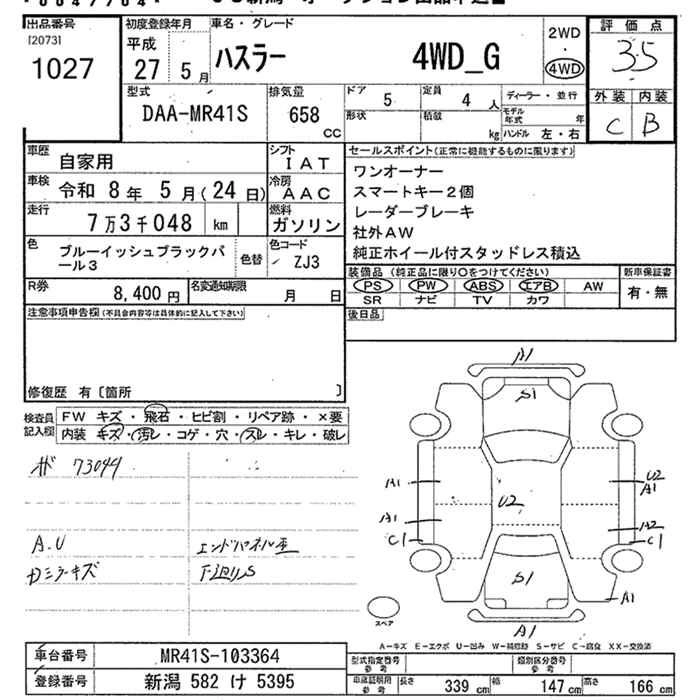 出品番号
[2073]
1027
初度登録年月
平成
27 年 5 月
車名・グレード
ハスラー 4WD_G
2WD
・
4WD
評価点
3.5
外装 内装
C B
型式
DAA-MR41S
排気量
658
CC
ドア 5
定員 4 人
形状
積載 kg
ディーラー・並行
モデル年式 年
ハンドル 左・右
車歴 自家用
シフト IAT
車検 令和 8 年 5 月(24 日)
冷房 AAC
走行 7万3千048 km
燃料 ガソリン
色 ブルーイッシュブラックパール3
色替
色コード ZJ3
R券 8,400 円
名変通知期限 月 日
セールスポイント(正常に機能するものに限ります)
ワンオーナー
スマートキー2個
レーダーブレーキ
社外AW
純正ホイール付スタッドレス積込
装備品(純正品に限り○をつけてください)
PS PW ABS エアB AW
SR ナビ TV カワ
新車保証書
有・無
後日品
注意事項申告欄(不具合内容等は具体的に記入して下さい)
修復歴 有〔箇所 〕
検査員記入欄
FW キズ・飛石・ヒビ割・リペア跡・×要
内装 キズ・汚レ・コゲ・穴・スレ・キレ・破レ
73044
A.U
エンドパネル歪
カミラーキズ
A1
S1
A1
A1
C1
U2
U2
A1
A2
C1
S1
A1
A1
スペア
A-キズ E-エクボ U-凹み W-補修跡 S-サビ C-腐食 XX-交換済
車台番号 MR41S-103364
登録番号 新潟 582 け 5395
型式指定番号 参考
類別区分番号 参考
車庫証明用 参考
長さ 339 cm
幅 147 cm
高さ 166 cm